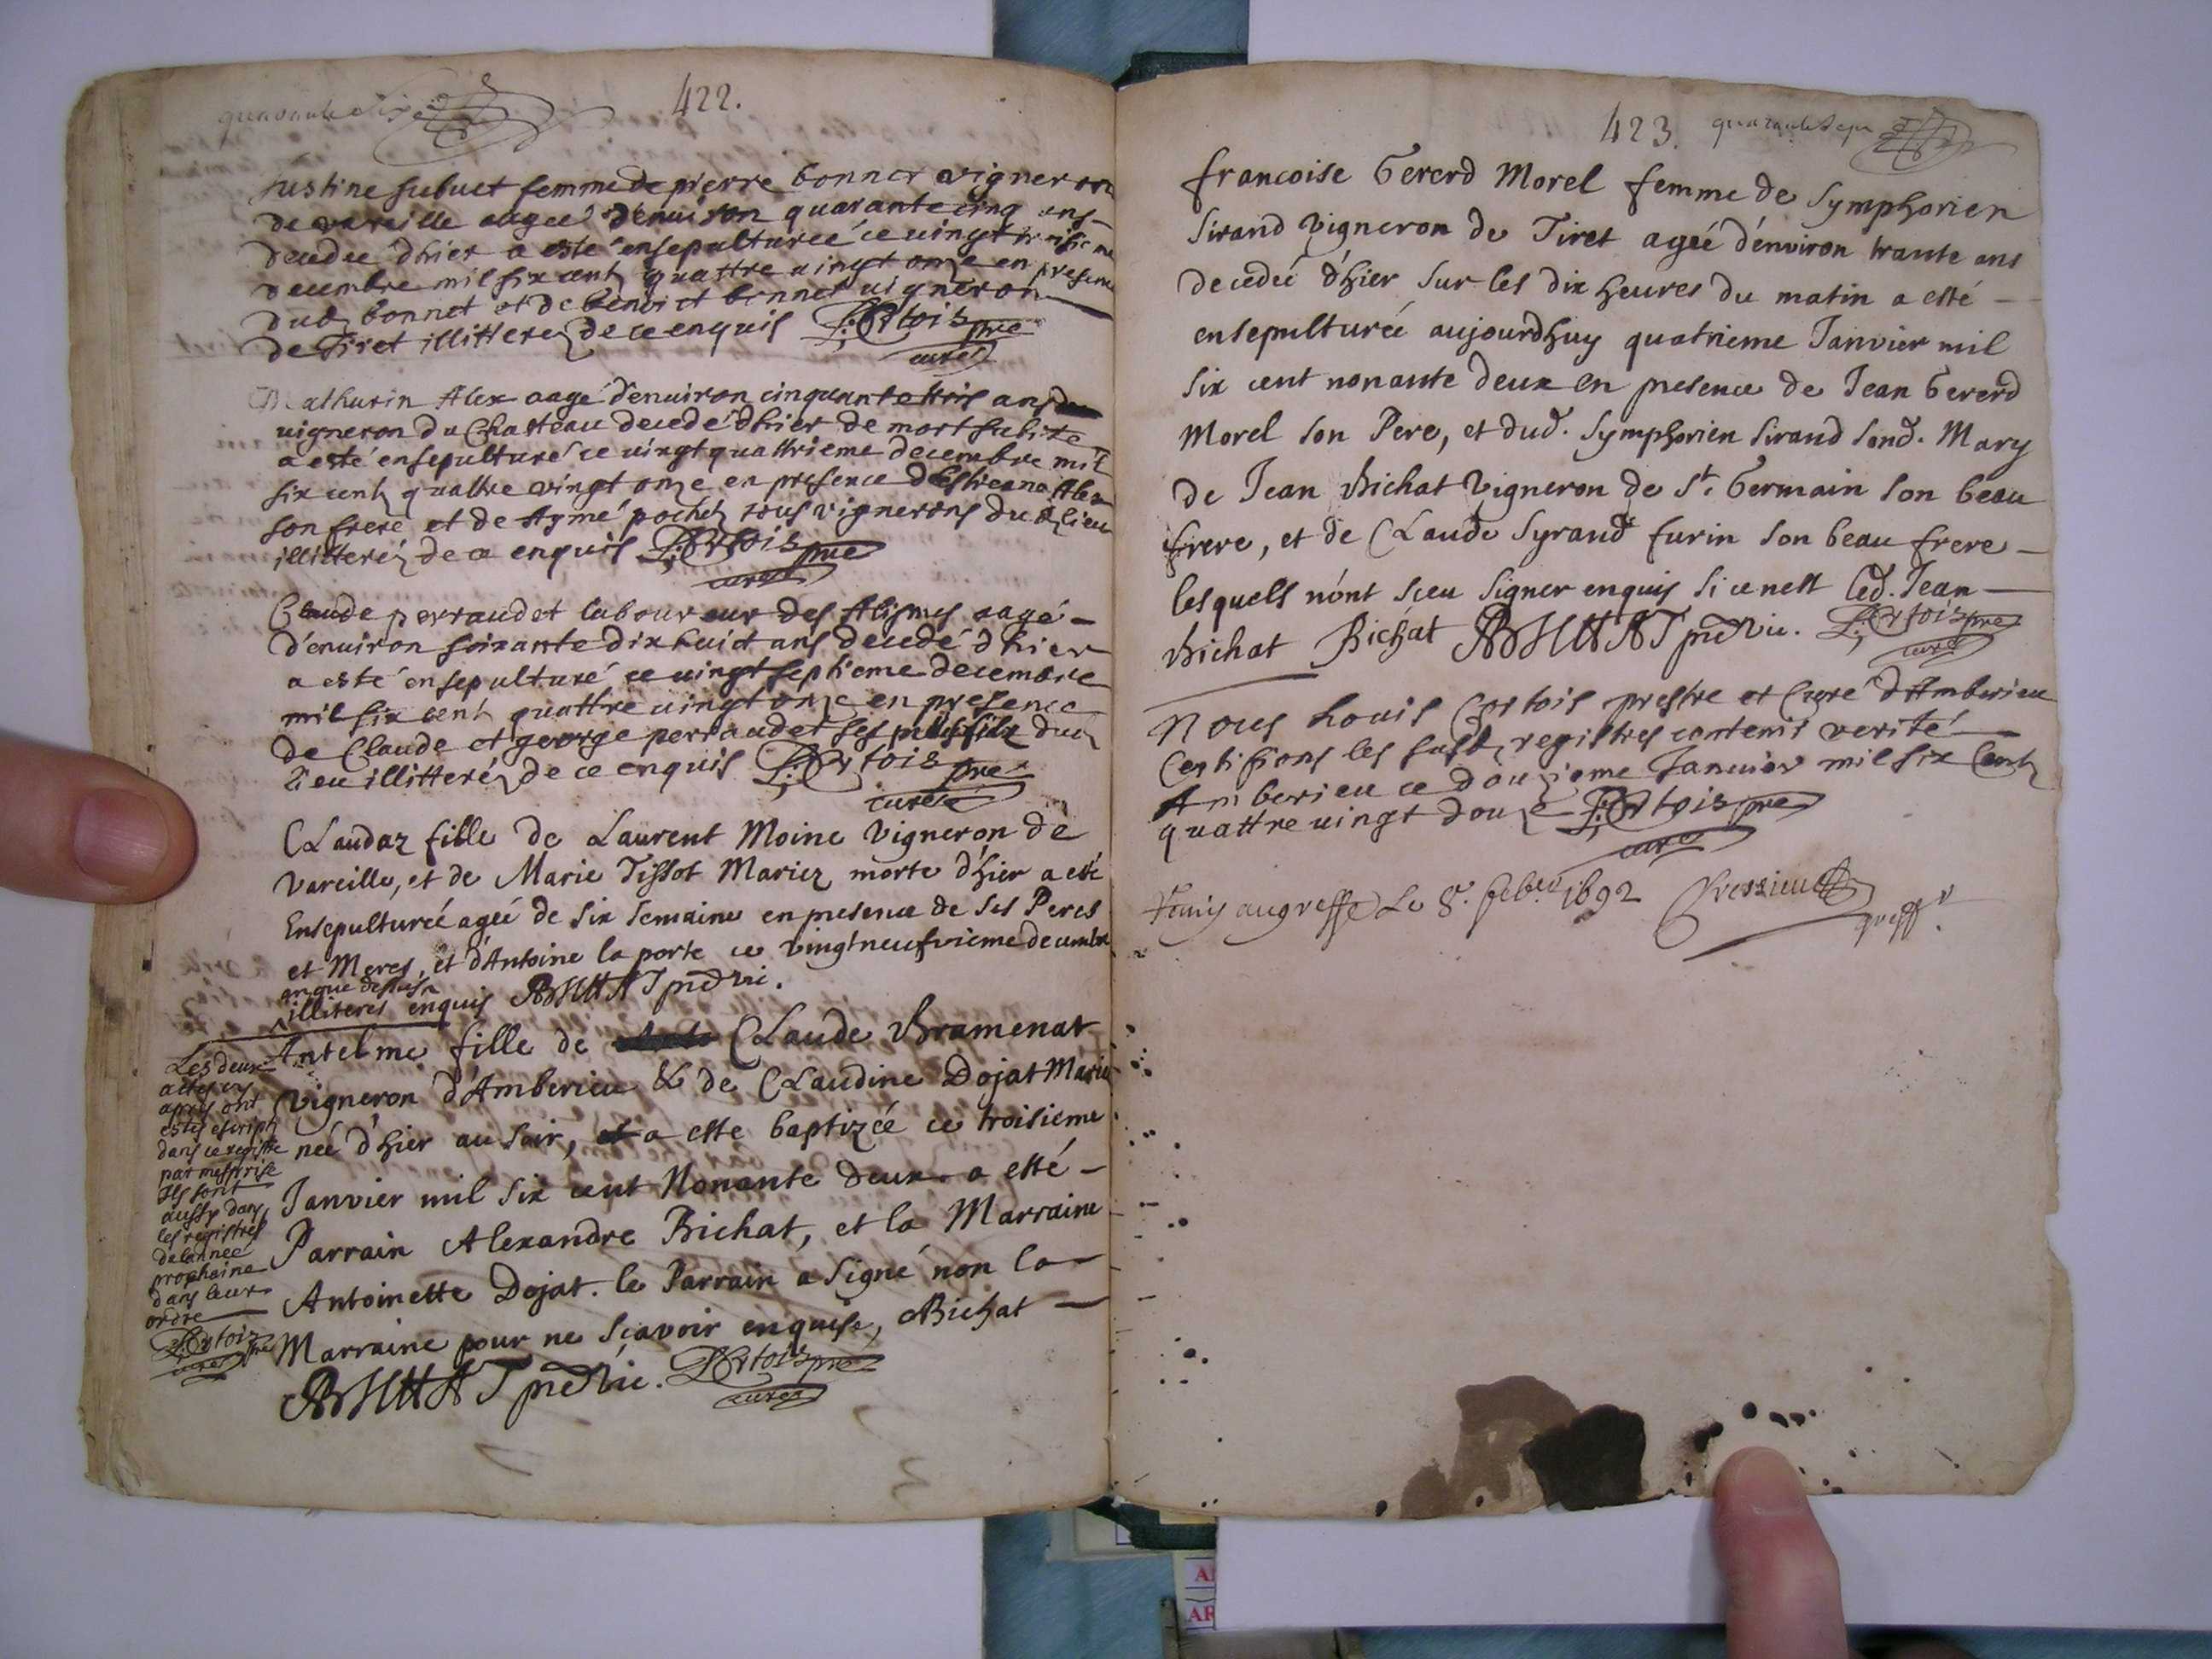 quarante six
422.
Justine subuet femme de pierre bonnet vigneron
de vareille aagee denuiron quarante cinq ans
decedee dhier a esté ensepulturee ce vingt troisieme
decembre mil six cent quattre uingt onze en presence
dud bonnet et de benoict bonnet uigneron
de Tiret illitterez de ce enquis L. Cortois pre
curé
Mathurin Alex aagé denuiron cinquante trois ans
uigneron du Chasteau decedé dhier de mort subite
a esté ensepulturé ce uingt quattrieme decembre mil
six centz quattre vingt onze en presence dEstienne Alex
son frere et de Aymé pochet tous vignerons dud lieu
illitteréz de ce enquis L. Cortois pre
curé
Claude perraudet laboureur des Abymes aagé
d'enuiron soixante dix huict ans decedé dhier
a esté ensepulturé ce uingt septieme decembre
mil six centz quattre uingt onze en presence
de Claude et george perraudet ses fils dud
lieu illitteréz de ce enquis L. Cortois pre
curé
Claudaz fille de Laurent Moine Vigneron de
Vareille, et de Marie Tissot Mariez morte d'hier a esté
Ensepulturée agée de six semaine en presence de ses Peres
et Meres, et d'Antoine la porte ce vingt neufvieme decembre
an que dessus
illiterés enquis BICHAT pre Vic.
Antelme fille de Claude Bramenat
vigneron d'Amberieu & de Claudine Dojat Marie
née d'hier au soir, a esté baptizée ce troisieme
Janvier mil six cent Nonante deux a esté
Parrain Alexandre Bichat, et la Marraine
Antoinette Dojat. le Parrain a signé non la
Marraine pour ne scavoir enquise, Bichat
BICHAT pre Vic. L. Cortois pre
curé
Les deux
actes cy
apres ont
estés escripts
dans ce registre
par mesprise
Ils sont
aussy dans
les registres
de lannee
prochaine
dans leur
ordre
L. Cortois
curé pre
423. quarante sept
francoise Gererd Morel femme de Symphorien
Sirand Vigneron de Tiret agée d'environ trante ans
decedeé d'hier sur les dix heures du matin a esté
ensepulturée aujourdhuy quatrieme Janvier mil
six cent nonante deux en presence de Jean Gererd
Morel son Pere, et dud. Symphorien Sirand sond. Mary
de Jean Bichat Vigneron de St. Germain son beau
frere, et de Claude Syrand furin son beau frere
lesquels n'ont sceu signer enquis si ce nest led. Jean
Bichat Bichat BICHAT pre Vic. L. Cortois pre
curé
Nous Louis Cortois prestre et Curé d'Amberieu
Certifions les susd registres contenir verité
Amberieu ce douzieme Januier mil six Centz
quattre uingt douze L. Cortois pre
curé
Remis au greffe Le 8e. feber 1692 Cressieu
greffr.